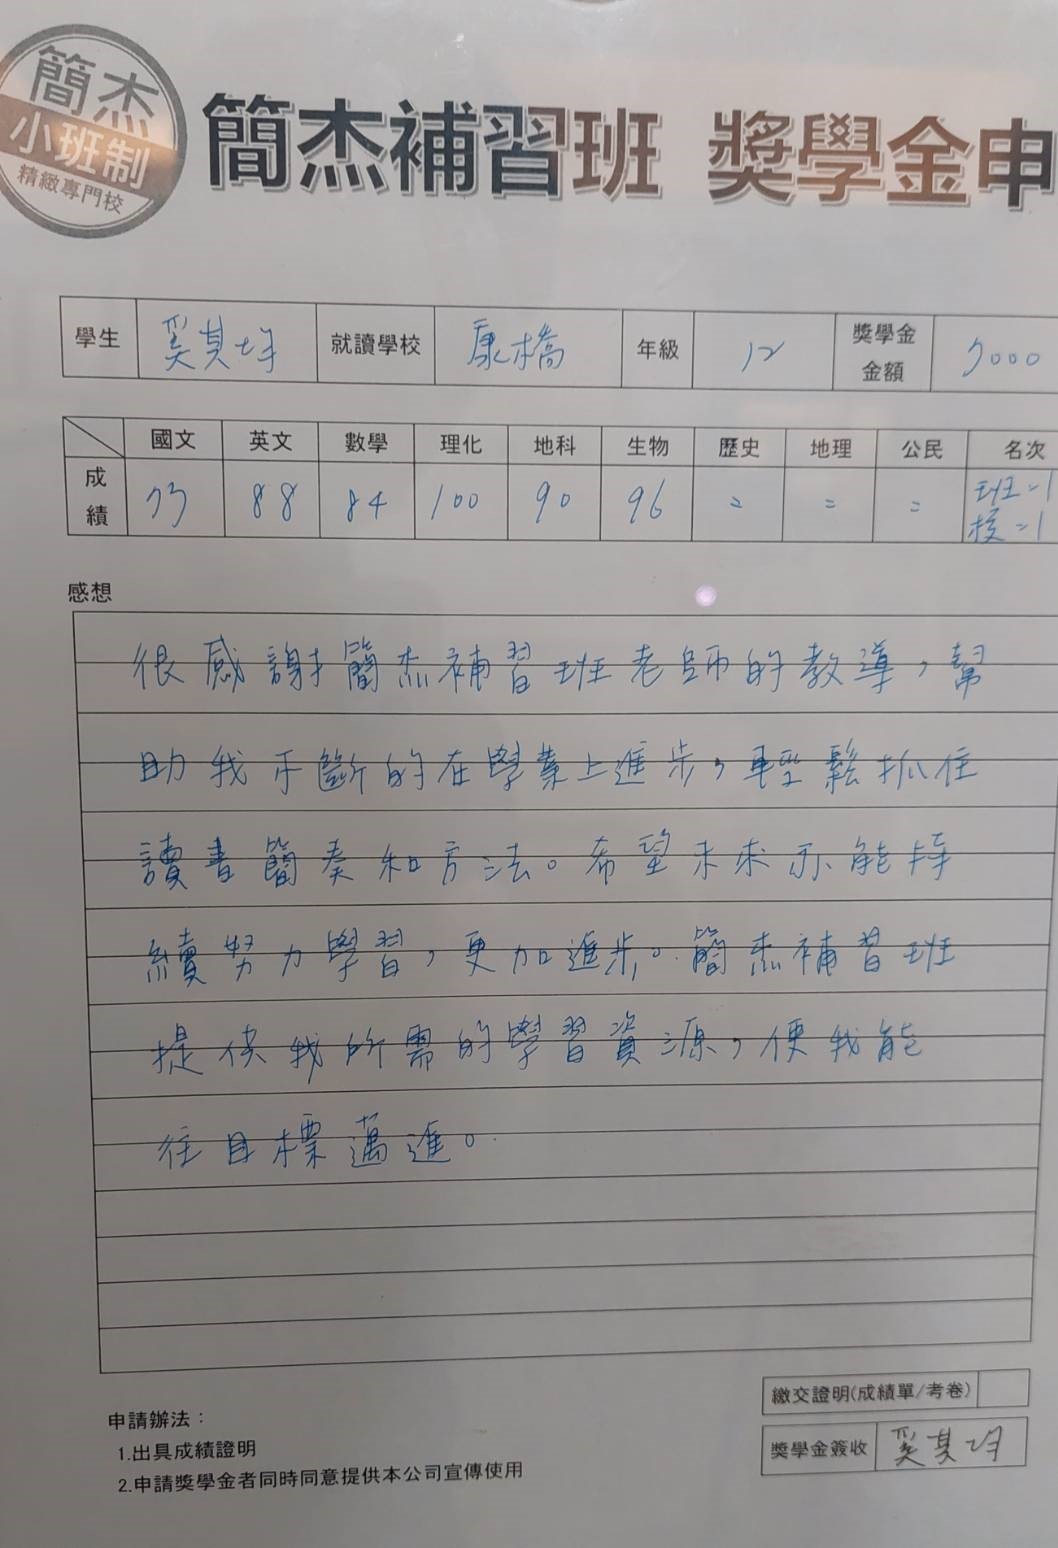 簡杰
小班制
精緻專門校
簡杰補習班 獎學金申
學生 奚其均 就讀學校 康橋 年級 12 獎學金金額 7000
國文 英文 數學 理化 地科 生物 歷史 地理 公民 名次
成績 73 88 84 100 90 96 = = = 班=1
校=1
感想
很感謝簡杰補習班老師的教導,幫
助我不斷的在學業上進步,輕鬆抓住
讀書簡奏和方法。希望未來亦能持
續努力學習,更加進步。簡杰補習班
提供我所需的學習資源,使我能
往目標邁進。
繳交證明(成績單/考卷)
獎學金簽收 奚其均
申請辦法:
1.出具成績證明
2.申請獎學金者同時同意提供本公司宣傳使用